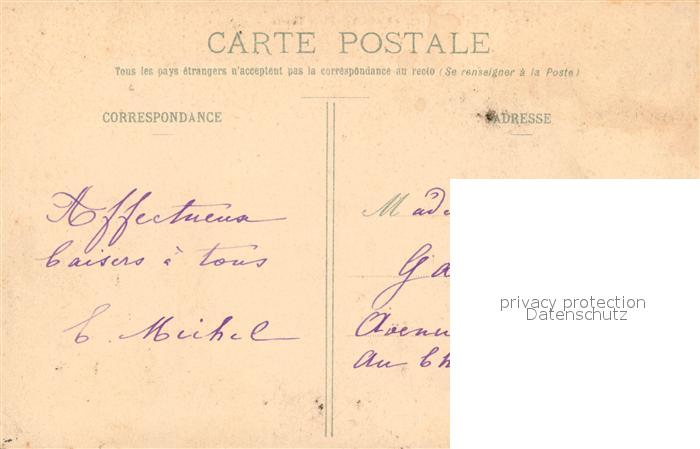 CARTE POSTALE
Tous les pays étrangers n'acceptent pas la correspondance au recto (Se renseigner à la Poste)
CORRESPONDANCE
ADRESSE
Affectueux
baisers à tous
E. Michel
Mad
Ga
Avenu
au Ch
privacy protection
Datenschutz